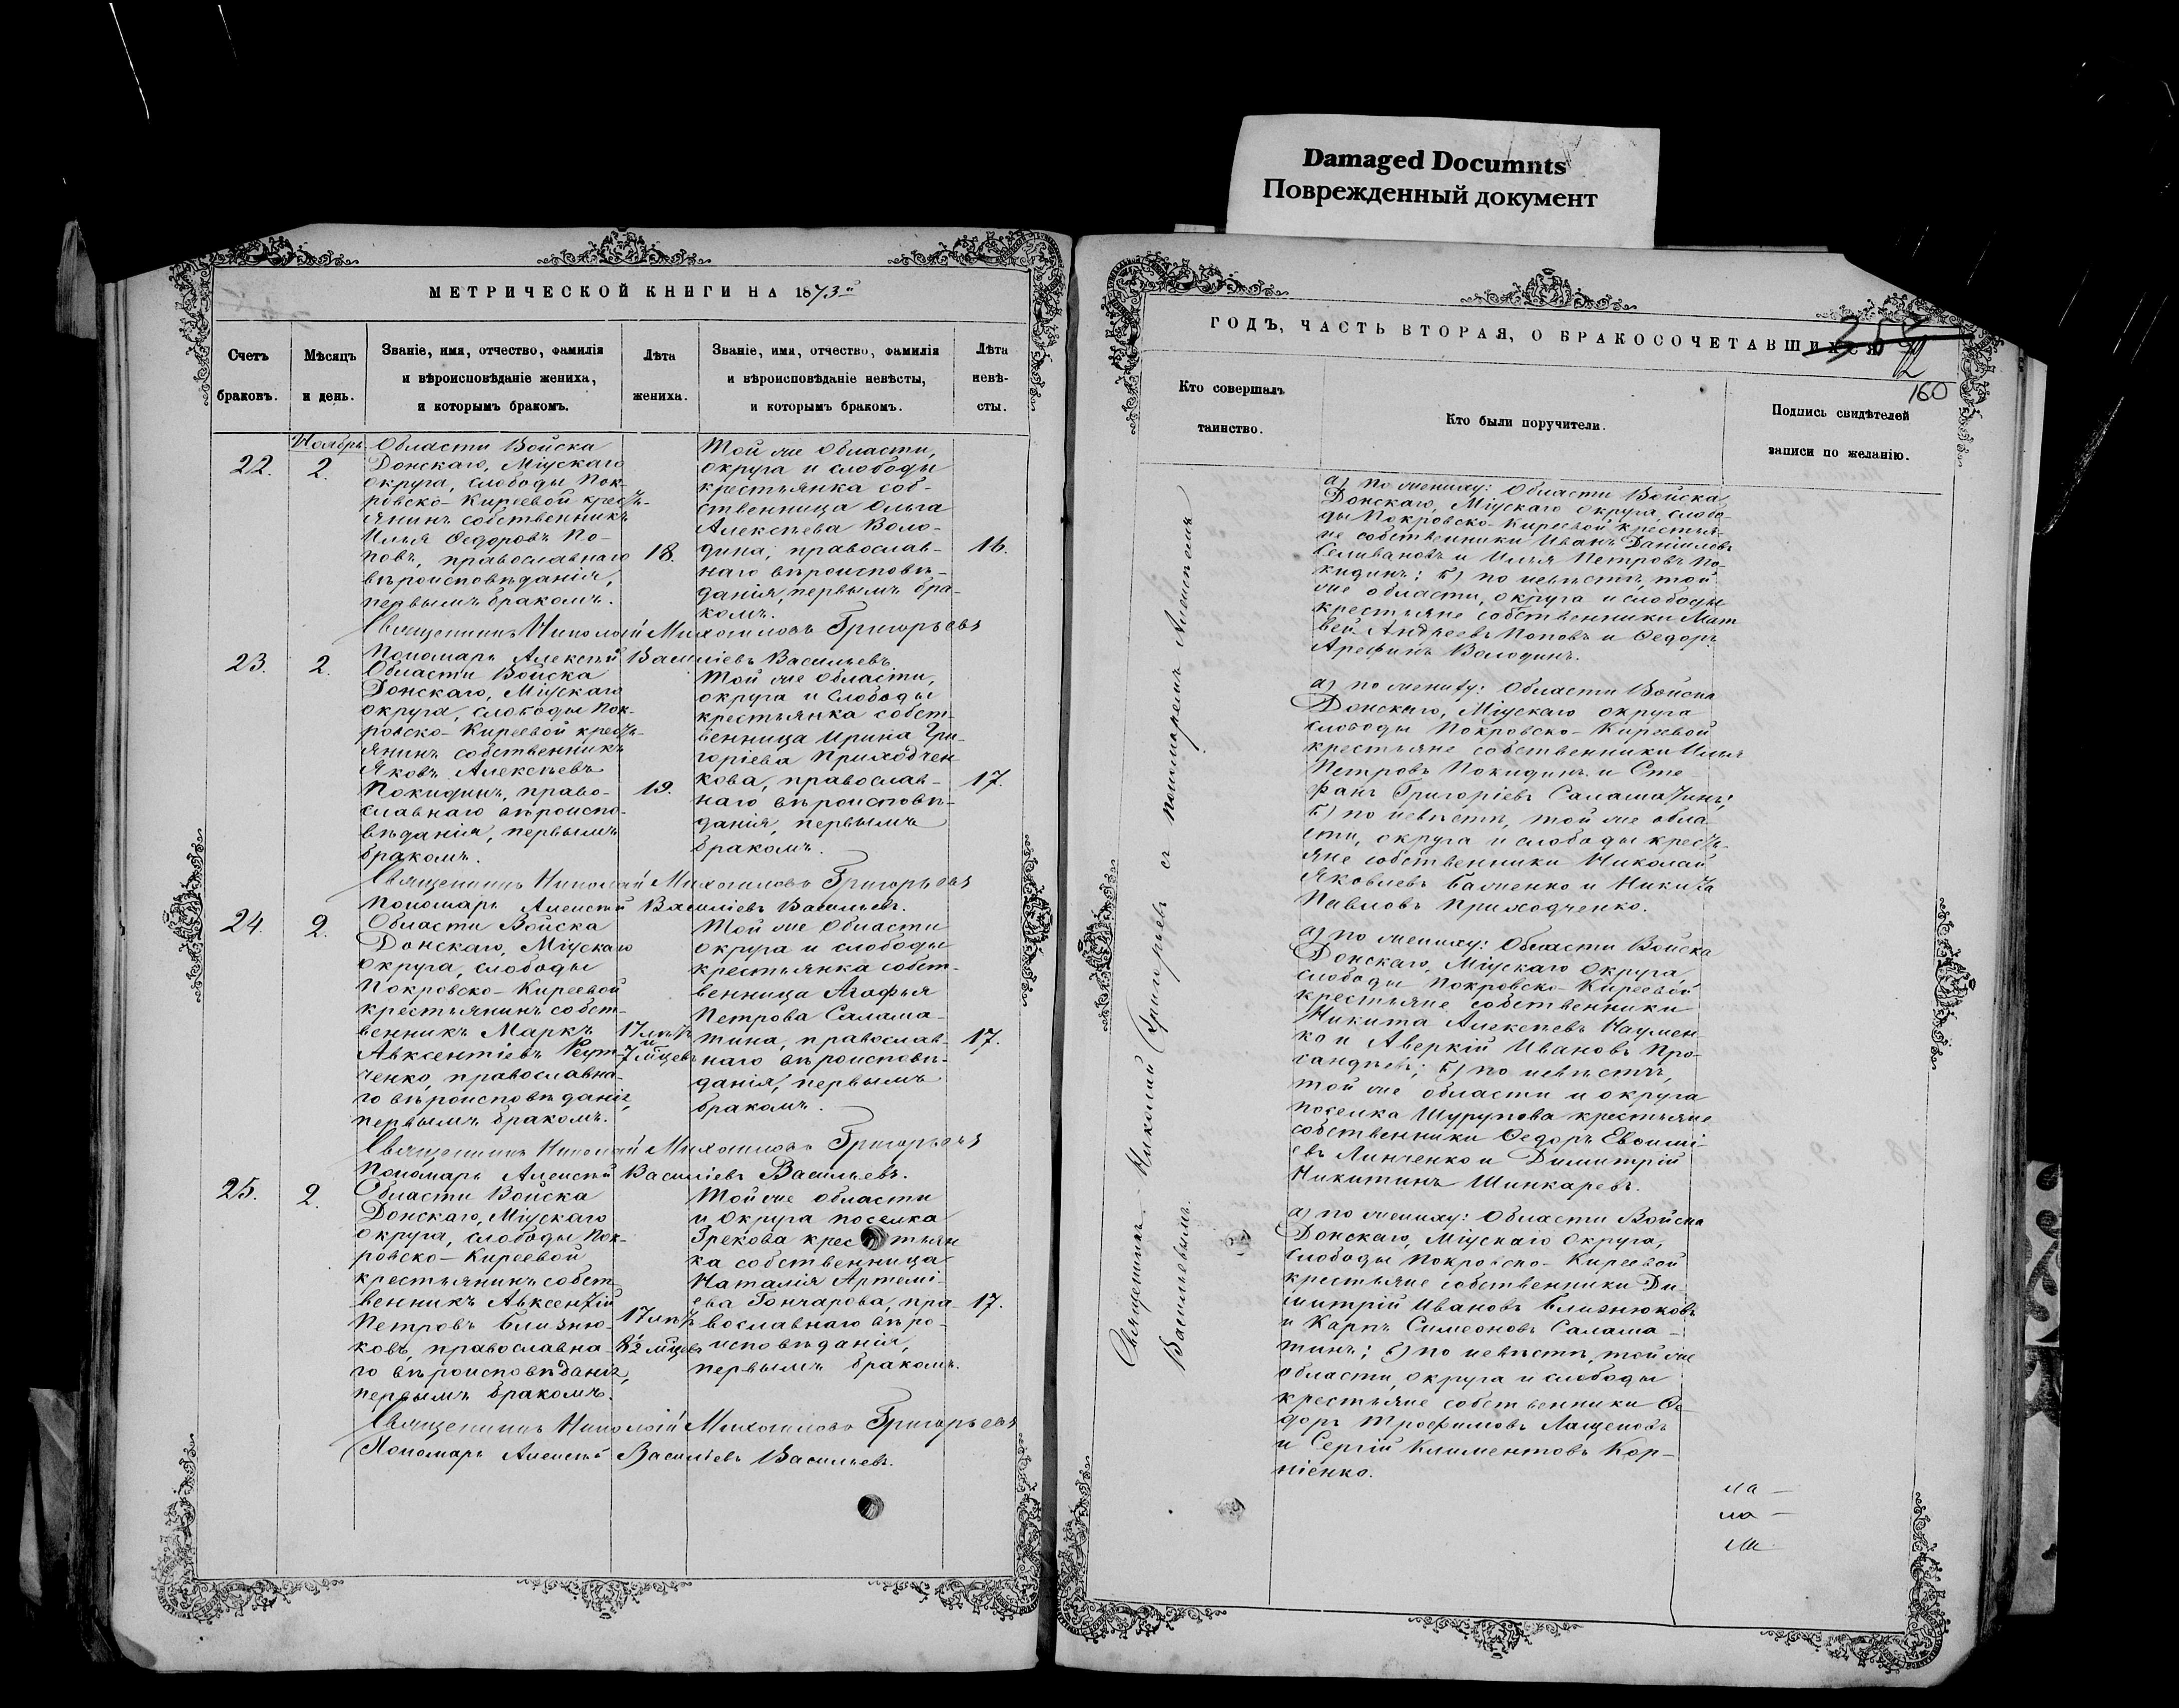 Damaged Documnts
Поврежденный документ
МЕТРИЧЕСКОЙ КНИГИ НА 1873й
Счетъ
браковъ.
Мѣсяцъ
и день.
Званіе, имя, отчество, фамилія
и вѣроисповѣданіе жениха,
и которымъ бракомъ.
Лѣта
жениха.
Званіе, имя, отчество, фамилія
и вѣроисповѣданіе невѣсты,
и которымъ бракомъ.
Лѣта
невѣ-
сты.
22.
Ноябрь
2.
Области Войска
Донскаго, Міускаго
округа, слободы Пок-
ровско-Киреевой кресть-
янинъ собственникъ
Илья Ѳедоровъ По-
повъ, православнаго
вѣроисповѣданія,
первымъ бракомъ.
18.
Той же Области,
округа и слободы
крестьянка соб-
ственница Ольга
Алексѣева Воло-
дина, православ-
наго вѣроисповѣ-
данія, первымъ бра-
комъ.
16.
Священникъ Николай Михаиловъ Григорьевъ
Пономарь Алексѣй Василіевъ Васильевъ
23.
2.
Области Войска
Донскаго, Міускаго
округа, слободы Пок-
ровско-Киреевой кресть-
янинъ собственникъ
Яковъ Алексѣевъ
Покидинъ, право-
славнаго вѣроиспо-
вѣданія, первымъ
бракомъ.
19.
Той же Области,
округа и Слободы
крестьянка собст-
венница Ирина Гри-
горіева Приходчен
кова, православ-
наго вѣроисповѣ-
данія, первымъ
бракомъ.
17.
Священникъ Николай Михаиловъ Григорьевъ
Пономарь Алексѣй Василіевъ Васильевъ.
24.
2.
Области Войска
Донскаго, Міускаго
округа, слободы
Покровско-Киреевой
крестьянинъ собст-
венникъ Маркъ
Авксентіевъ Реут-
ченко, православна-
го вѣроисповѣданія,
первымъ бракомъ.
17 лѣтъ
и
7 мцевъ
Той же Области
округа и слободы
крестьянка собст-
венница Агафья
Петрова Салама-
тина, православ-
наго вѣроисповѣ-
данія, первымъ
бракомъ.
17.
Священникъ Николай Михаиловъ Григорьевъ
Пономарь Алексѣй Василіевъ Васильевъ.
25.
2.
Области Войска
Донскаго, Міускаго
округа, слободы Пок-
ровско-Киреевой
крестьянинъ собст
венникъ Авксентій
Петровъ Близню-
ковъ, православна-
го вѣроисповѣданія,
первымъ бракомъ.
17 лѣтъ
8½ мцевъ
Той же области
и Округа поселка
Грекова крестьян
ка собственница
Наталія Артемі-
ева Гончарова, пра-
вославнаго вѣро-
исповѣданія,
первымъ бракомъ.
17.
Священникъ Николай Михаиловъ Григорьевъ
Пономарь Алексѣй Василіевъ Васильевъ.
ГОДЪ, ЧАСТЬ ВТОРАЯ, О БРАКОСОЧЕТАВШИХСЯ
160
Кто совершалъ
таинство.
Кто были поручители.
Подпись свидѣтелей
записи по желанію.
Священникъ Николай Григорьевъ съ пономаремъ Алексѣемъ
Васильевымъ.
а) по жениху: Области Войска
Донскаго, Міускаго округа, слобо-
ды Покровско-Киреевой крестья-
не собственники Иванъ Даніиловъ
Селивановъ и Илья Петровъ По-
кидинъ; б) по невѣстѣ, той
же области, округа и слободы
крестьяне собственники Мат
вей Андреевъ Поповъ и Ѳедоръ
Арефинъ Володинъ.
а) по жениху: Области Войска
Донскаго, Міускаго округа
слободы Покровско-Киреевой
крестьяне собственники Илья
Петровъ Покидинъ и Сте-
фанъ Григоріевъ Саламатинъ;
б) по невѣстѣ, той же обла-
сти, округа и слободы кресть-
яне собственники Николай
Яковлевъ Баженко и Никита
Павловъ Приходченко.
а) по жениху: Области Войска
Донскаго, Міускаго Округа,
слободы Покровско-Киреевой
крестьяне собственники
Никита Алексѣевъ Наумен
ко и Аверкій Ивановъ Про-
сандѣевъ; б) по невѣстѣ,
той же области и округа
поселка Шурупова крестьяне
собственники Ѳедоръ Евѳимі-
евъ Линченко и Димитрій
Никитинъ Шинкаревъ.
а) по жениху: Области Войска
Донскаго, Міускаго Округа,
слободы Покровско-Киреевой
крестьяне собственники Ди-
митрій Ивановъ Близнюковъ
и Карпъ Симеоновъ Салама-
тинъ; б) по невѣстѣ, той же
области, округа и слободы
крестьяне собственники Ѳе
доръ Трофимовъ Лащеновъ
и Сергій Климентовъ Кор-
ніенко.